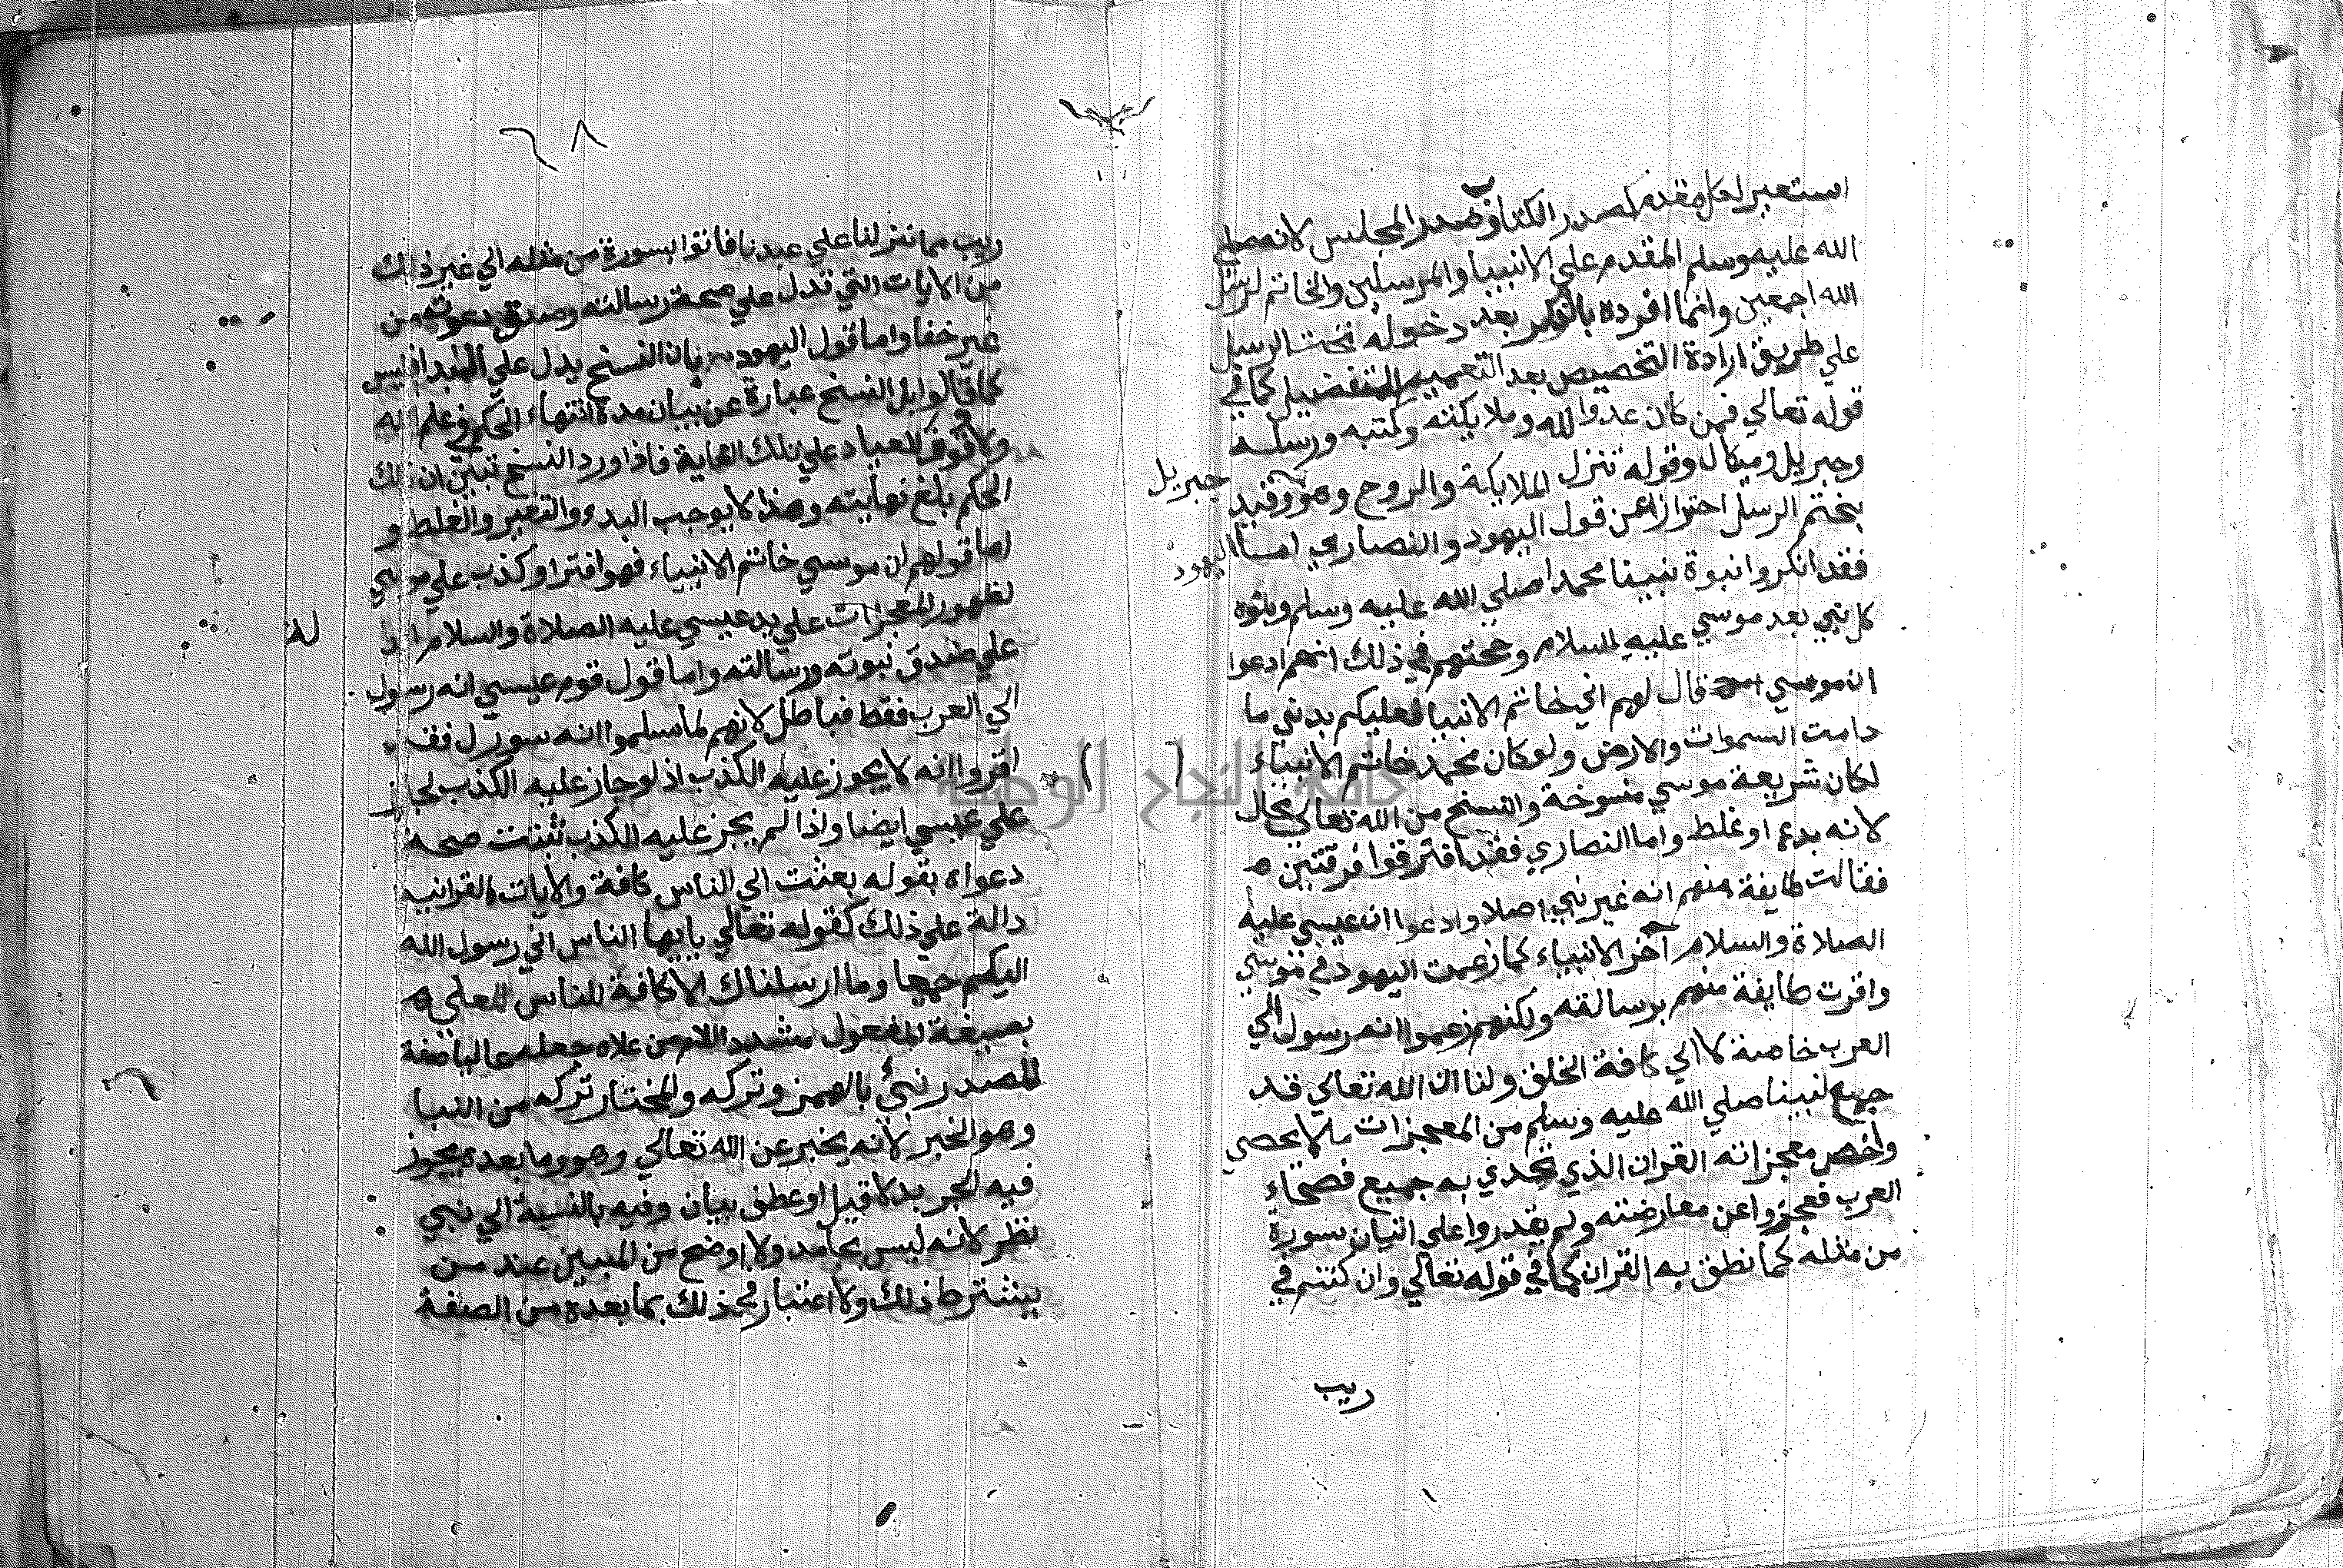 استعير لكل مقدم كصدر الكتاب وصدر المجلس لانه صلي
الله عليه وسلم المقدم علي الانبيا والمرسلين والخاتم لرسل
الله اجمعين وانما افرده بالذكر بعد دخوله تحت الرسل
علي طريق ارادة التخصيص بعد التعميم للتفضيل كما في
قوله تعالي فمن كان عدوا لله وملايكته وكتبه ورسله
وجبريل وميكال وقوله تنزل الملايكة والروح وهو جبريل وقيد
بختم الرسل احترازا عن قول اليهود والنصاري اما اليهود
فقد انكروا نبوة نبينا محمدا صلي الله عليه وسلم ونبوه
كل نبي بعد موسي عليه السلام وحجتهم في ذلك انهم ادعوا
ان موسي قال لهم اني خاتم الانبيا فعليكم بديني ما
دامت السموات والارض ولو كان محمد خاتم الانبياء
لكان شريعة موسي منسوخة والنسخ من الله تعالي محال
لانه بدء او غلط واما النصاري فقد افترقوا فرقتين
فقالت طايفة منهم انه غير نبي اصلا وادعوا ان عيسي عليه
الصلاة والسلام آخر الانبياء كما زعمت اليهود في موسي
واقرت طايفة منهم برسالته ولكنهم زعموا انه رسول الي
العرب خاصة لا الي كافة الخلق ولنا ان الله تعالي قد
جمع لنبينا صلي الله عليه وسلم من المعجزات ما لا يحصي
واخص معجزاته القران الذي تحدي به جميع فصحاء
العرب فعجزوا عن معارضته ولم يقدروا علي اتيان سورة
من مثله كما نطق به القران كما في قوله تعالي وان كنتم في
ريب
٦٨
ريب مما نزلنا علي عبدنا فاتوا بسورة من مثله الي غير ذلك
من الايات التي تدل علي صحة رسالته وصدق دعوته من
غير خفا واما قول اليهود بان النسخ يدل علي البدا فليس
كما قالوا بل النسخ عبارة عن بيان مدة انتهاء الحكم في علم الله
ولا وقوف للعباد علي تلك الغاية فاذا ورد النسخ تبين ان ذلك
الحكم بلغ نهايته وهذا لا يوجب البدء والتغير والغلط و
اما قولهم ان موسي خاتم الانبياء فهو افترا وكذب علي موسي
لظهور المعجزات علي يد عيسي عليه الصلاة والسلام الدا
لة
علي صدق نبوته ورسالته واما قول قوم عيسي انه رسول
الي العرب فقط فباطل لانهم لما سلموا انه رسول فقد
اقروا انه لا يجوز عليه الكذب اذ لو جاز عليه الكذب لجاز
علي عيسي ايضا واذا لم يجز عليه الكذب ثبتت صحة
دعواه بقوله بعثت الي الناس كافة والايات القرانيه
دالة علي ذلك كقوله تعالي يايها الناس اني رسول الله
اليكم جميعا وما ارسلناك الا كافة للناس المعلي
بصيغة المفعول مشدد اللام من علاه جعله عاليا صفة
للمصدر نبئ بالهمز وتركه والمختار تركه من النبا
وهو الخبر لانه يخبر عن الله تعالي وهو وما بعده يجوز
فيه الجر بدلا قيل او عطف بيان وفيه بالنسبة الي نبي
نظر لانه ليس بجامد ولا اوضح من المبين عند من
يشترط ذلك ولا اعتبار في ذلك بما بعده من الصفة
جامعة النجاح الوطنية